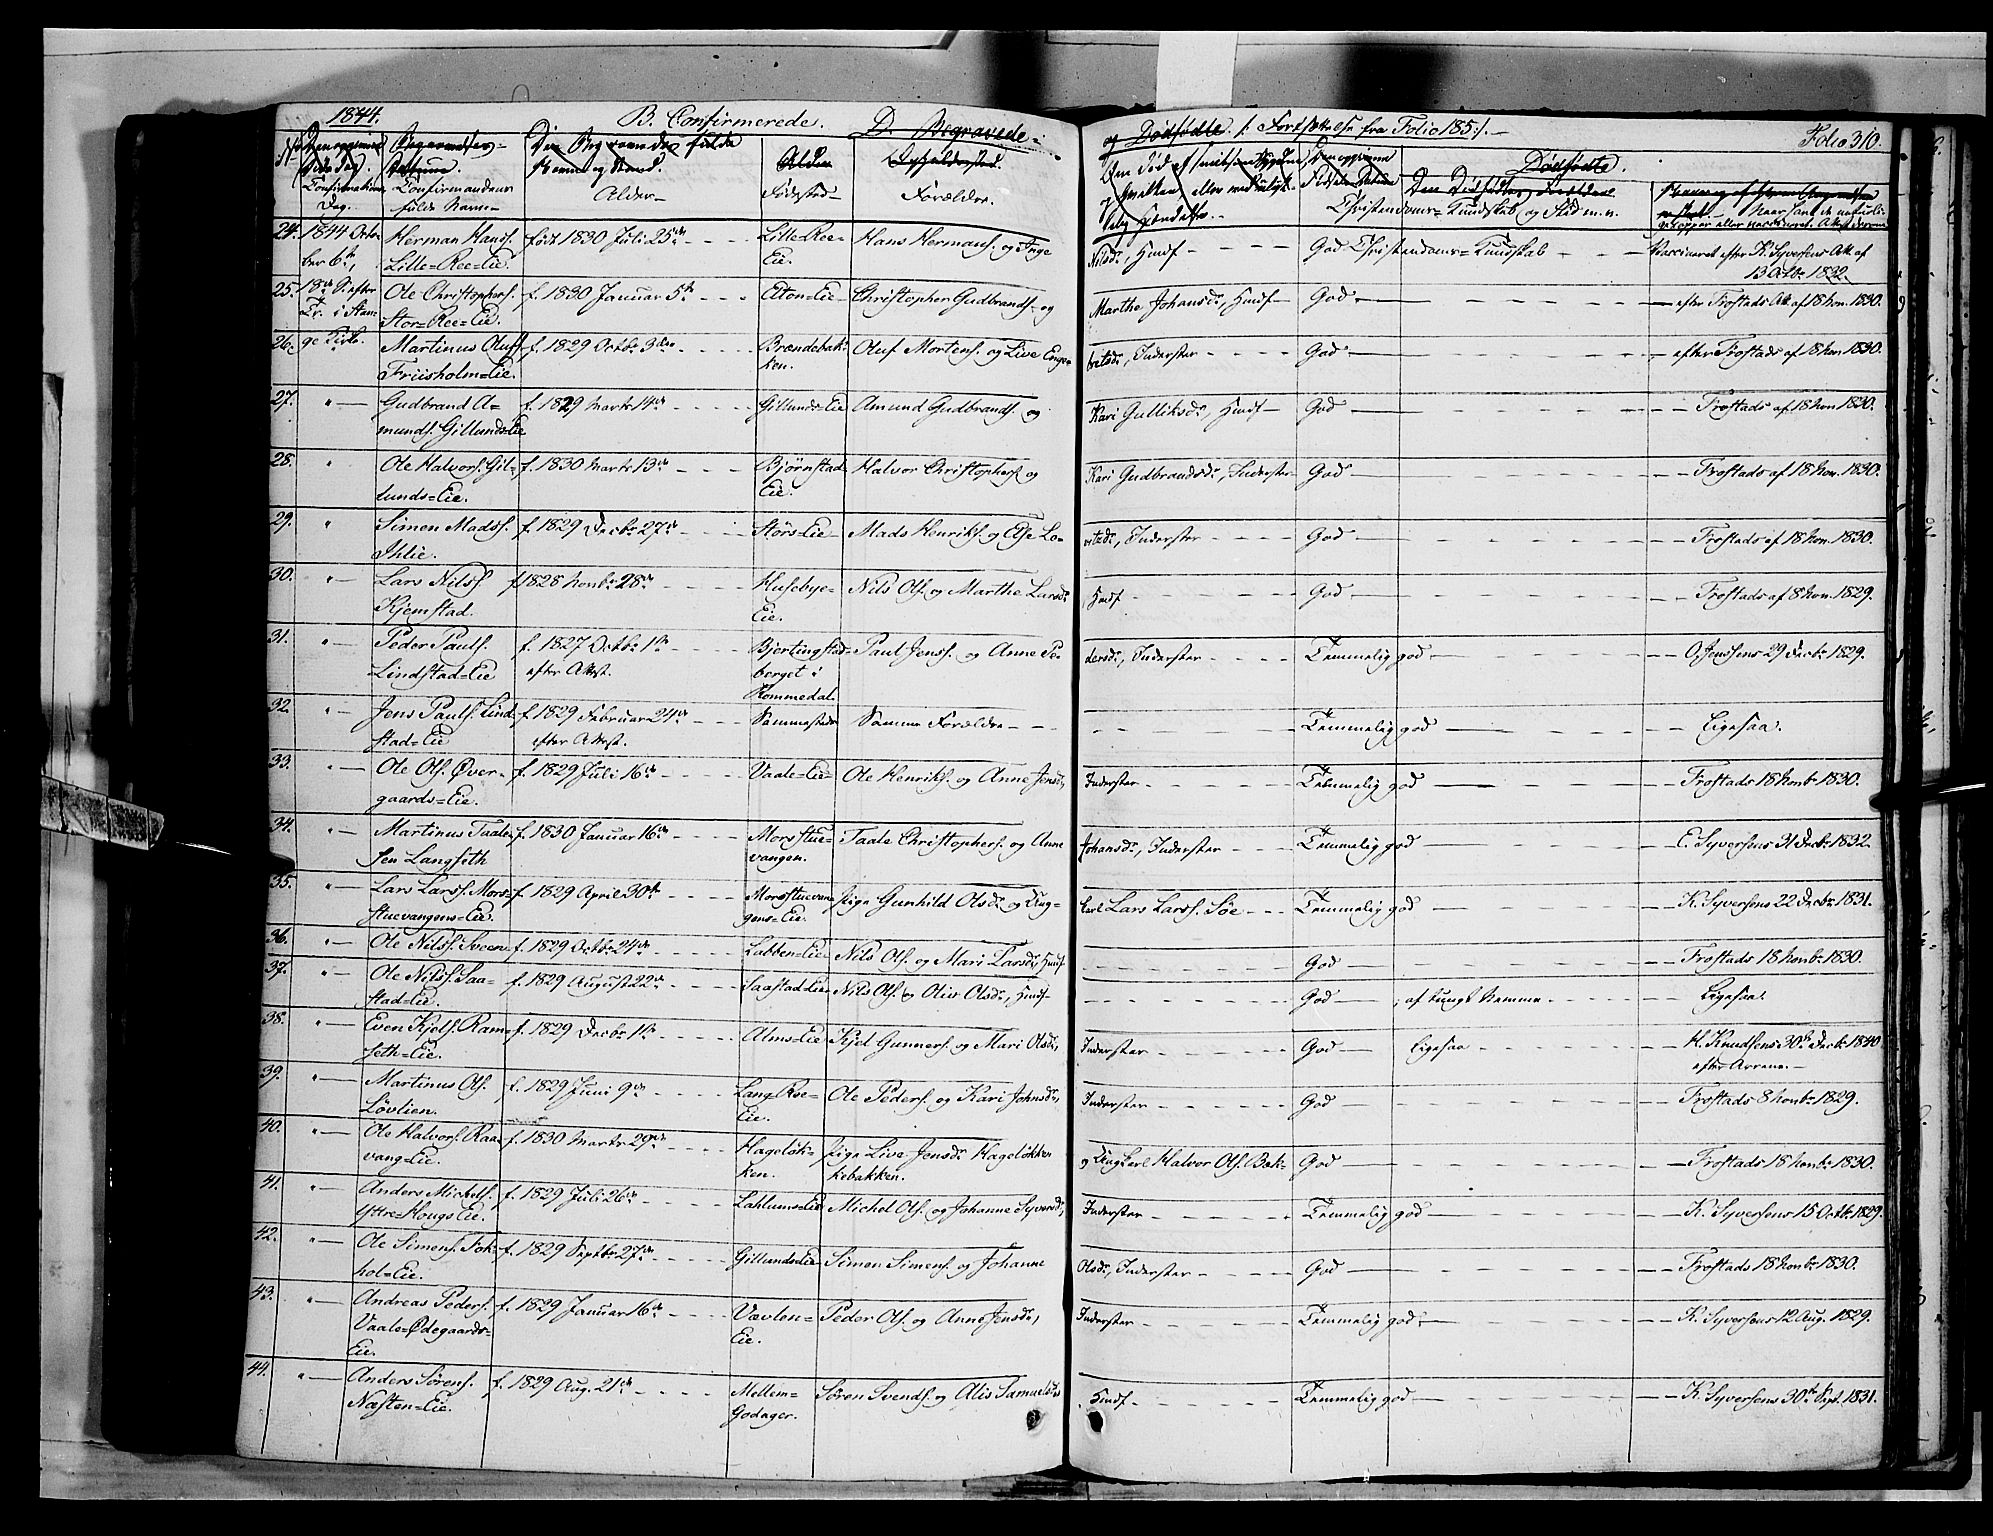 1844.
B. Confirmerede.
D. Begravede
og Dødfødte. /: Fortsættelse fra Folio 185 :/.
Folio 310.
Confirmations Dag.
Confirmandens fulde Navn
Alder
Fødested
Forældre.
Christendoms=Kundskab og Flid m.m.
Dødfødte.
24. 1844 October 6te, Herman Hansf. Lille=Ree=Eie. født 1830 Juli 25de Lille=Ree=Eie. Hans Hermansf. og Inge Nilsdr, Huusf God Christendoms=Kundskab Vaccineret efter K. Syversens Att. af 13 Octbr 1832
25. 18de S. efter Tr. i Stange Kirke. Ole Christophersf. Stor=Ree=Eie. f. 1830 Januar 5te Etton=Eie Christopher Gudbrandsf. og Marthe Johansdr, Huusf God efter Frostads Att. af 18 Nov. 1830.
26. Martinus Olufsf. Friisholm=Eie. f. 1829 Octbr 3die Brændebakken. Oluf Mortensf. og Live Engebretsdr, Inderster God efter Frostads af 18 Nov. 1830.
27. " Gudbrand Amundsf. Gillunds=Eie f. 1829 Marts 14de Gillunds=Eie Amund Gudbrandsf. og Kari Gulliksdr, Huusf God Frostads af 18 Nov. 1830.
28. " Ole Halvorsf. Gillunds=Eie. f. 1830 Marts 13de Bjørnstad Eie. Halvor Christophersf. og Kari Gudbrandsdr, Inderster God Frostads af 18 Nov. 1830.
29. " Simen Madsf. Ihlie. f. 1829 Decbr 27de Störs=Eie Mads Henriksf. og Else Lovitsdr, Inderster God Frostads af 18 Nov. 1830.
30. " Lars Nilsf. Kjemstad. f 1828 Novbr 28de Husebye=Eie. Nils Olsf. og Marthe Larsdr Huusf God Frostads af 8 Nov. 1829.
31. " Peder Paulsf. Lindstad=Eie f. 1827 Octbr 1ste efter Attest. Bjertingstadberget i Rommedal. Paul Jensf. og Anne Pedersdr, Inderster Temmelig god O. Jenssens 29 Decbr 1829.
32. " Jens Paulsf. Lindstad=Eie f. 1829 Februar 24de efter Attest. Sammesteds Samme Forældre Temmelig god Ligesaa.
33. " Ole Olsf. Øvergaards=Eie. f. 1829 Juli 16de Vaale=Eie Ole Henriksf. og Anne Jensdr, Inderster Temmelig god Frostads 18 Novbr 1830.
34. " Martinus Taalesen Langseth f. 1830 Januar 16de Morstuevangen. Taale Christophersf. og Anne Johansdr, Inderster Temmelig god E. Syversens 31 Decbr 1832.
35. " Lars Larsf. Morstuevangens=Eie. f. 1829 April 30te Morstuevangens=Eie. Pige Gunhild Olsdr og Ungkarl Lars Larsf. Söe Temmelig god K. Syversens 22 Decbr 1831.
36. " Ole Nilsf. Sveen f. 1829 Octbr 24de Labben=Eie Nils Olsf. og Mari Larsdr, Huusf God Frostads 18 Novbr 1830.
37. " Ole Nilsf. Saastad=Eie. f. 1829 August 22de Saastad=Eie Nils Olsf. og Oliv Olsdr, Huusf God, af tungt Nemme Ligesaa.
38. " Even Kjelsf. Ramseth=Eie. f. 1829 Decbr 1ste Alms=Eie Kjel Gunnersf. og Mari Olsdr, Inderster God Ligesaa H. Knudsens 30te Decbr 1840 efter Arrene.
39. " Martinus Olsf. Lövlien. f. 1829 Juni 9de Lang=Ree=Eie. Ole Pedersf. og Kari Johnsdr, Inderster God Frostads 8 Novbr 1829.
40. " Ole Halvorsf. Raavang=Eie. f. 1830 Marts 29de Hagelökken. Pige Live Jensdr Hagelökken og Ungkarl Halvor Olsf. Bækkebakken. God Frostads 18 Novbr 1830.
41. " Anders Michelsf. Yttre=Hougs Eie. f. 1829 Juli 26de Lahlums=Eie Michel Olsf. og Johanne Syversdr, Inderster Temmelig god K. Syversens 15 Octbr 1829.
42. " Ole Simensf. Fokhol=Eie. f. 1829 Septbr 27de Gillunds=Eie Simen Simensf. og Johanne Olsdr, Inderster God Frostads 18 Novbr 1830.
43. " Andreas Pedersf. Vaale=Ødegaards=Eie. f. 1829 Januar 16de Vævlen=Eie. Peder Olsf. og Anne Jensdr, Inderster Temmelig god K. Syversens 12 Aug. 1829.
44. " Anders Sörensf. Næsten=Eie. f. 1829 Aug. 21de Mellem=Godager. Sören Svendsf. og Alis Samuelsdr Huusf. Temmelig god K. Syversens 30te Sept. 1831.